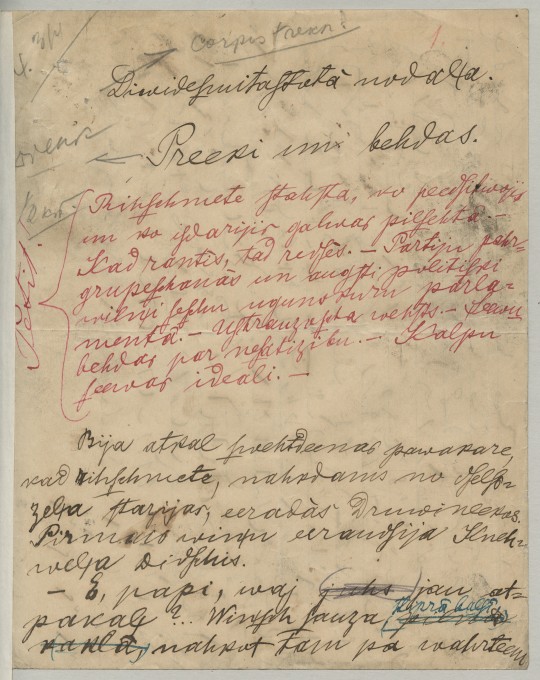 corpus trekn.
1
Diwidesmitastotā nodaļa.
Preeki un behdas.
Petit.
Rihschmete stahsta, ko peedsihwojis
un ko isdarijis galwas pilsehtā. —
Kad rantis, tad redsēs. — Partiju pahr-
grupeschanās un augsti politiski
wilni seschu ugunskuru parla-
mentā. — Istrauzosta wehsts. — Seewu
behdas par nesatizibu. — Kalpu
seewas ideali. —
Bija atkal swehtdeenas pawakare,
kad Rihschmete, nahkdams no dselss-
zeļa stazijas, eeradās Druwineekos.
Pirmais wiņu eeraudsija Kneh-
weļa Didschis.
— E, papi, waj juhs jau at-
pakaļ?.. Wiņsch sauza
kaklā, nahkot tam pa wahrteem